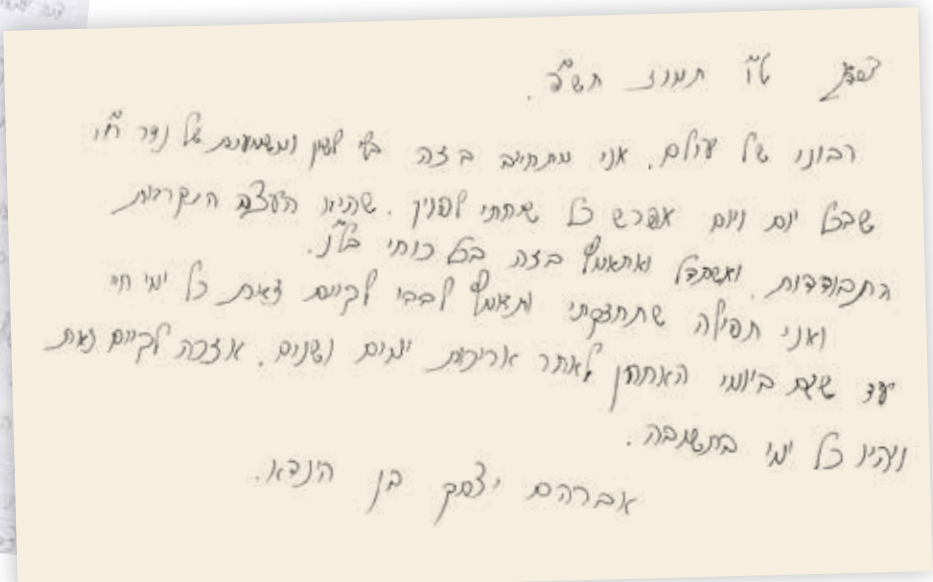 צפת ט"ו תמוז תש"פ.
רבונו של עולם. אני מתחייב בזה בכל לשון ומשמעות של נדר ח"ו
שבכל יום ויום אפרש כל שיחתי לפניך. שהיא העצה הנקראת
התבודדות. ואשתדל ואתאמץ בזה בכל כוחי בל"נ.
ואני תפילה שתחזקני ותאמץ לבבי לקיים זאת כל ימי חיי
עד שגם ביומי האחרון לאחר אריכות ימים ושנים. אזכה לקיים זאת
ויהיו כל ימי בתשובה.
אברהם יצחק בן הינדא.